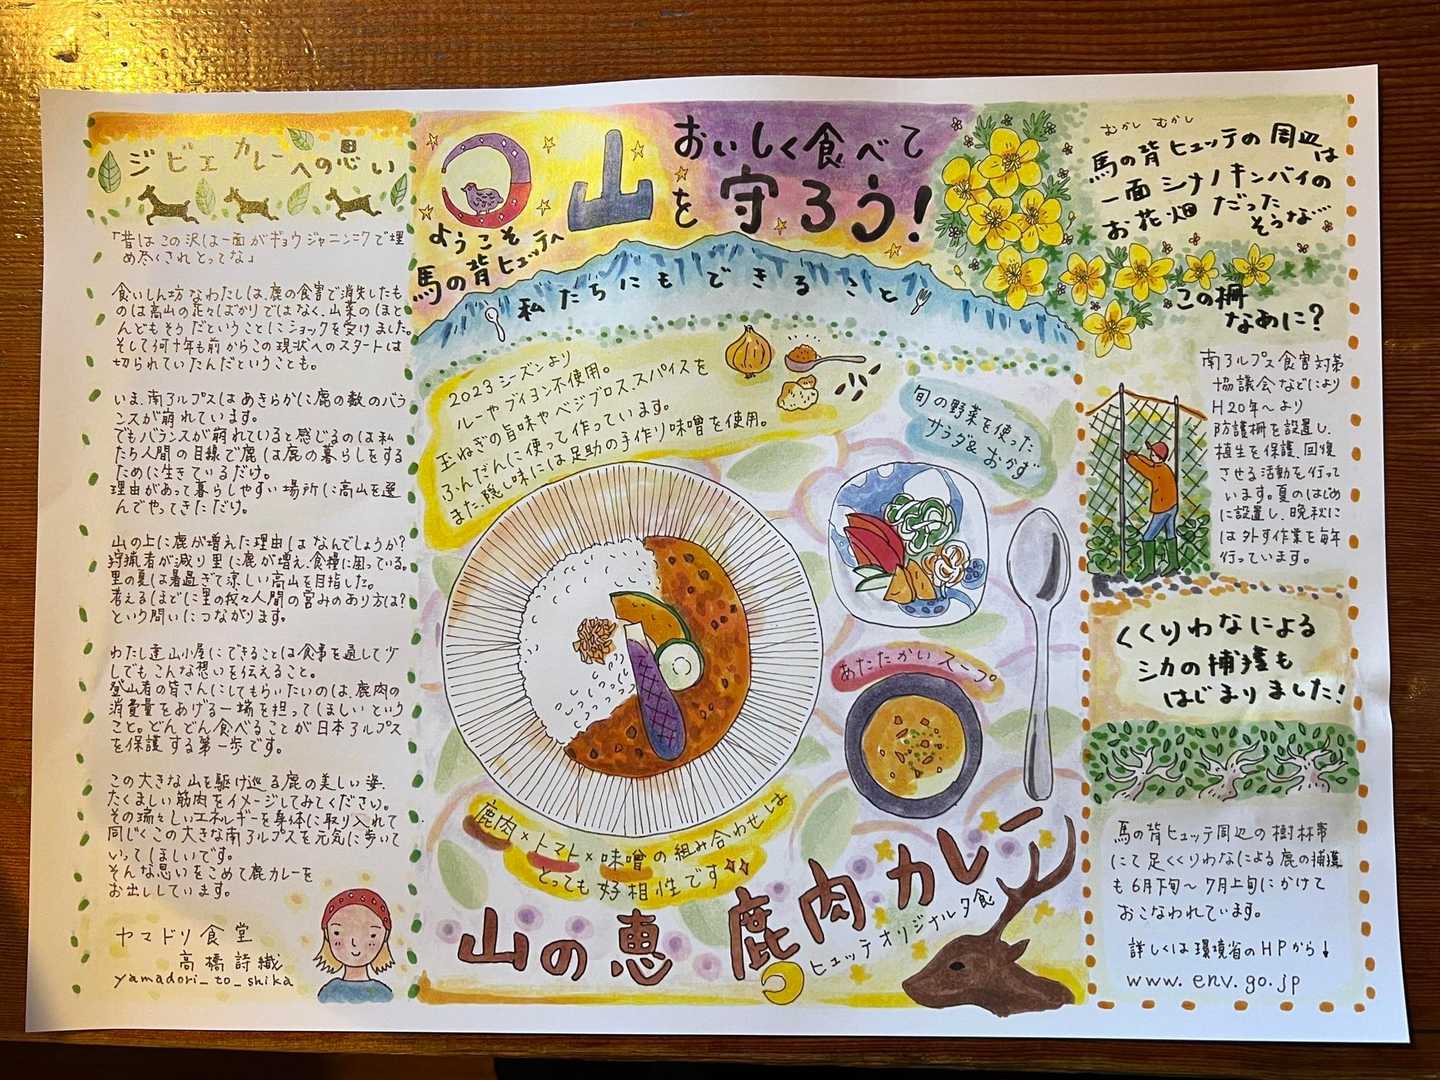 ジビエカレーへの思い
「昔はこの沢は一面がギョウジャニンニクで埋
め尽くされとってな」
食いしん坊なわたしは、鹿の食害で消失したも
のは高山の花々ばかりではなく、山菜のほと
んどもそうだということにショックを受けました。
そして何十年も前からこの現状へのスタートは
切られていたんだということも。
いま、南アルプスはあきらかに鹿の数のバラ
ンスが崩れています。
でもバランスが崩れていると感じるのは私
たち人間の目線で鹿は鹿の暮らしをする
ために生きているだけ。
理由があって暮らしやすい場所に高山を選
んでやってきただけ。
山の上に鹿が増えた理由はなんでしょうか?
狩猟者が減り里に鹿が増え、食糧に困っている。
里の夏は暑過ぎて涼しい高山を目指した。
考えるほどに里の我々人間の営みのあり方は?
という問いにつながります。
わたし達山小屋にできることは食事を通して少
しでもこんな想いを伝えること。
登山者の皆さんにしてもらいたいのは、鹿肉の
消費量をあげる一端を担ってほしいという
こと。どんどん食べることが日本アルプス
を保護する第一歩です。
この大きな山を駆け巡る鹿の美しい姿、
たくましい筋肉をイメージしてみてください。
その瑞々しいエネルギーを身体に取り入れて
同じくこの大きな南アルプスを元気に歩いて
いってほしいです。
そんな思いをこめて鹿カレーを
お出ししています。
ヤマドリ食堂
高橋詩織
yamadori_to_shika
おいしく食べて
山を守ろう!
ようこそ
馬の背ヒュッテへ
私たちにもできること!
2023シーズンより
ルーやブイヨン不使用。
玉ねぎの旨味やベジブロス、スパイスを
ふんだんに使って作っています。
また、隠し味には足助の手作り味噌を使用。
旬の野菜を使った
サラダ&おかず
あたたかいスープ
鹿肉×トマト×味噌の組み合わせは
とっても好相性です
山の恵 鹿肉カレー
ヒュッテオリジナル夕食
むかし むかし
馬の背ヒュッテの周辺は
一面シナノキンバイの
お花畑だった
そうな…
この柵
なあに?
南アルプス食害対策
協議会などにより
H20年〜より
防護柵を設置し、
植生を保護、回復
させる活動を行って
います。夏のはじめ
に設置し、晩秋に
は外す作業を毎年
行っています。
くくりわなによる
シカの捕獲も
はじまりました!
馬の背ヒュッテ周辺の樹林帯
にて足くくりわなによる鹿の捕獲
も6月下旬〜7月上旬にかけて
おこなわれています。
詳しくは環境省のHPから↓
www.env.go.jp